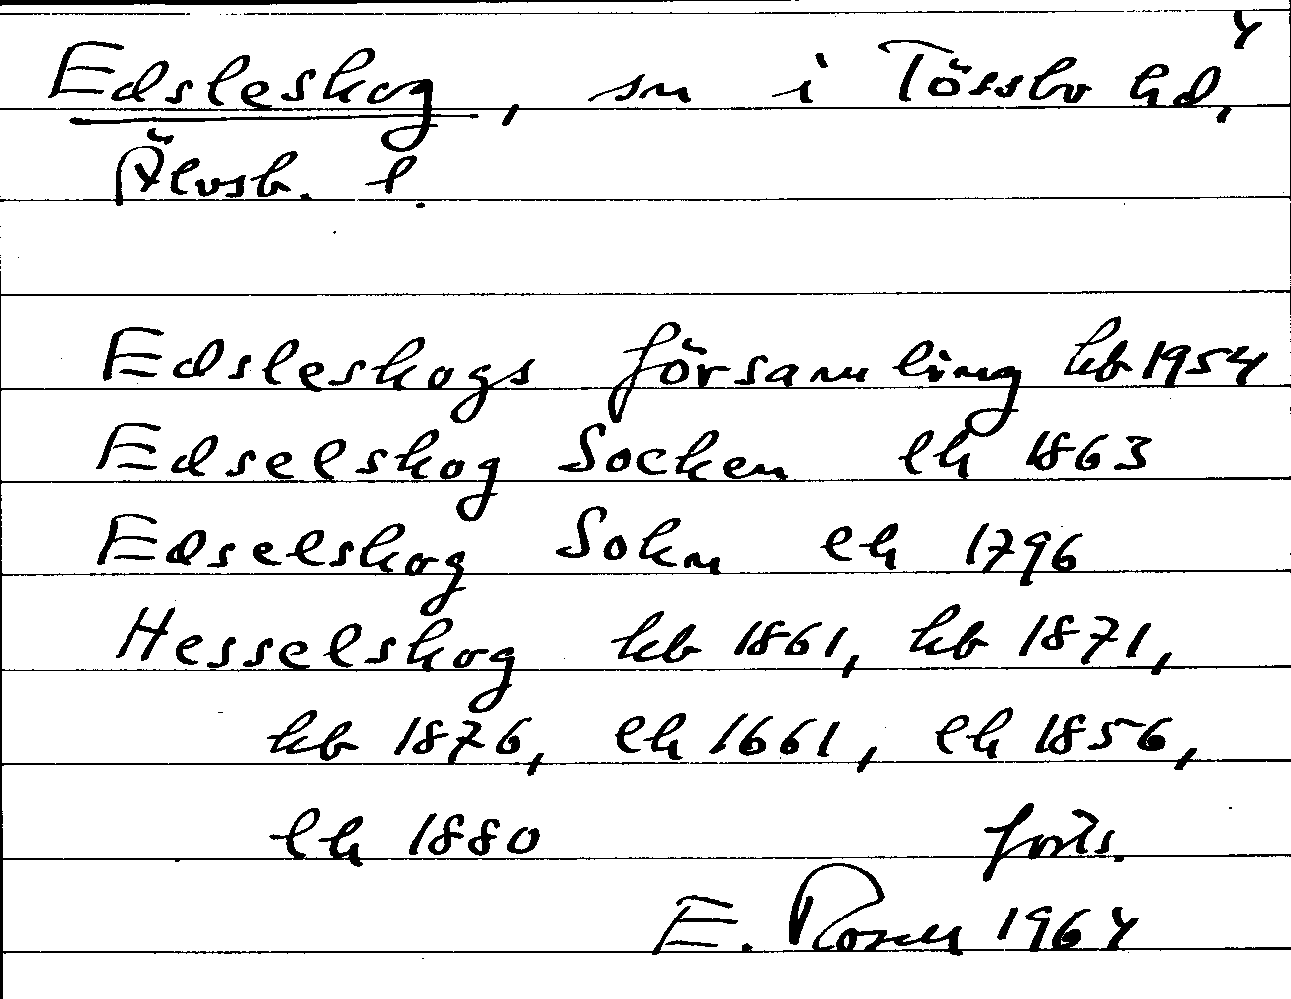 4
Edsleskog, sn i Tössbo hd,
Älvsb. l.
Edsleskogs församling kb 1954
Edselskog Socken lh 1863
Edselskog Sokn lh 1796
Hesselskog kb 1861, kb 1871,
kb 1876, lh 1661, lh 1856,
lh 1880 forts.
E. Rosell 1964